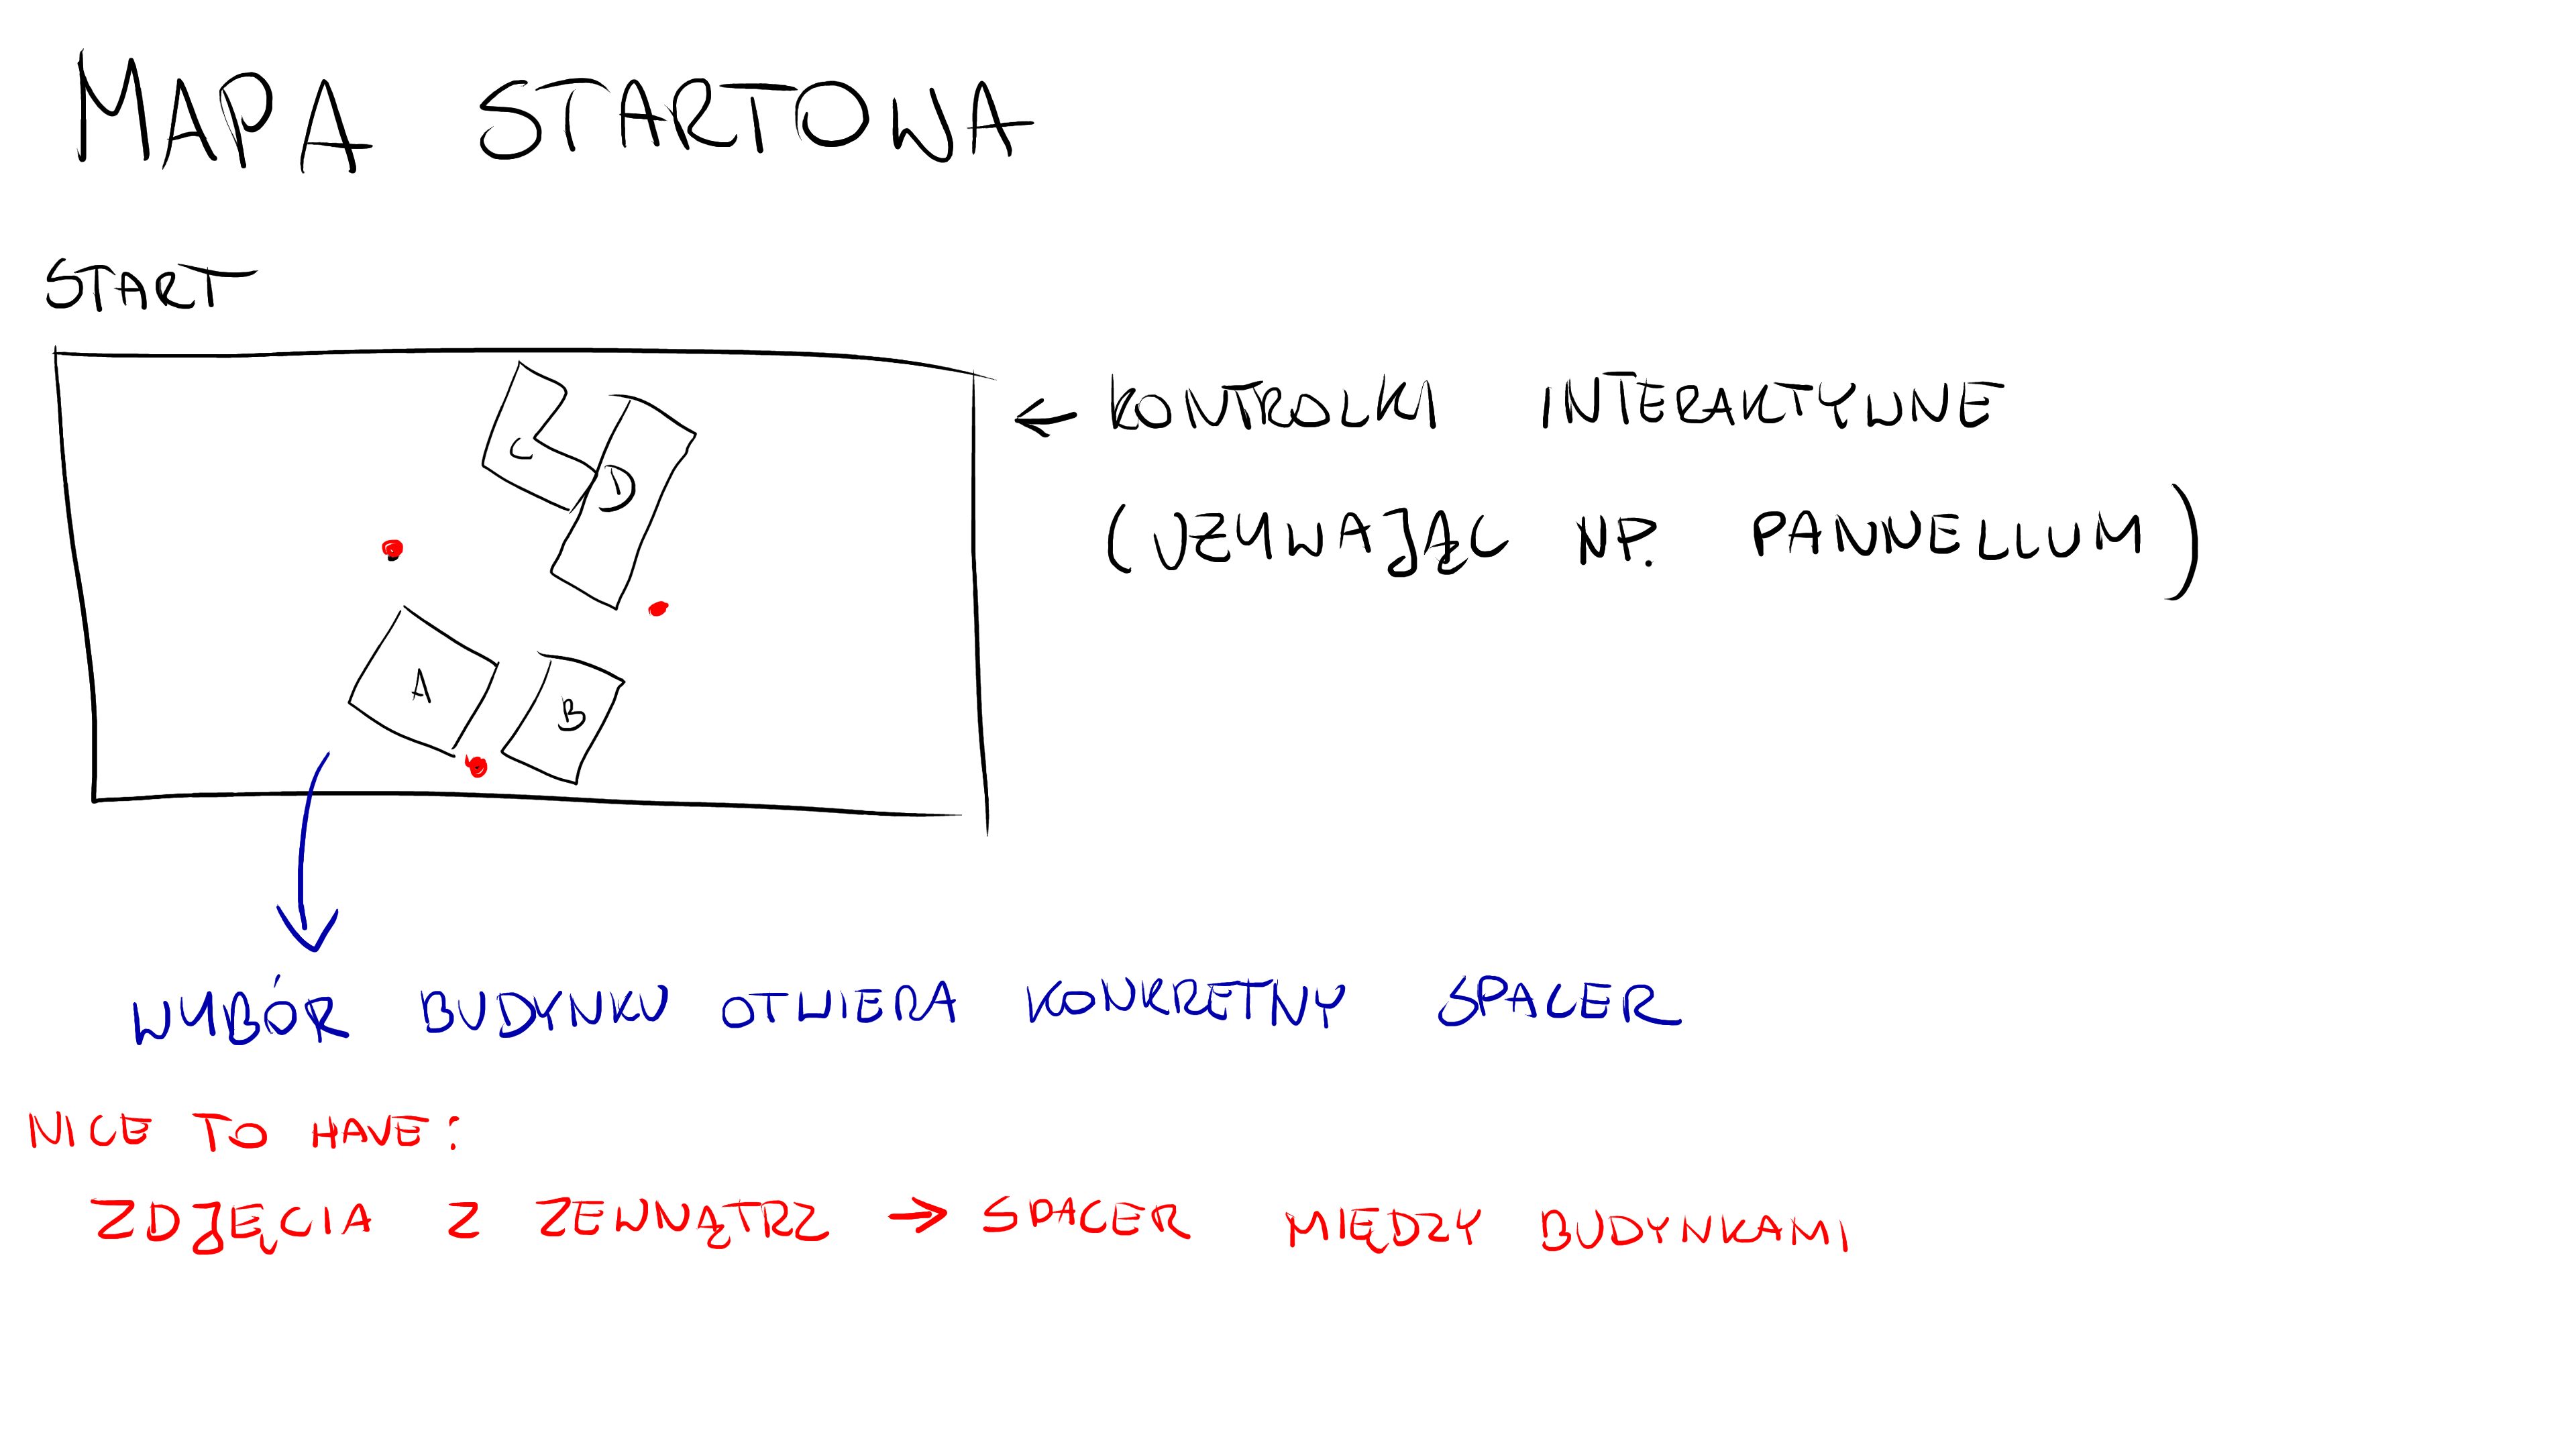 MAPA STARTOWA
START
← KONTROLKI INTERAKTYWNE
(UZYWAJĄC NP. PANNELLUM)
C
D
A
B
WYBÓR BUDYNKU OTWIERA KONKRETNY SPACER
NICE TO HAVE:
ZDJĘCIA Z ZEWNĄTRZ → SPACER MIĘDZY BUDYNKAMI